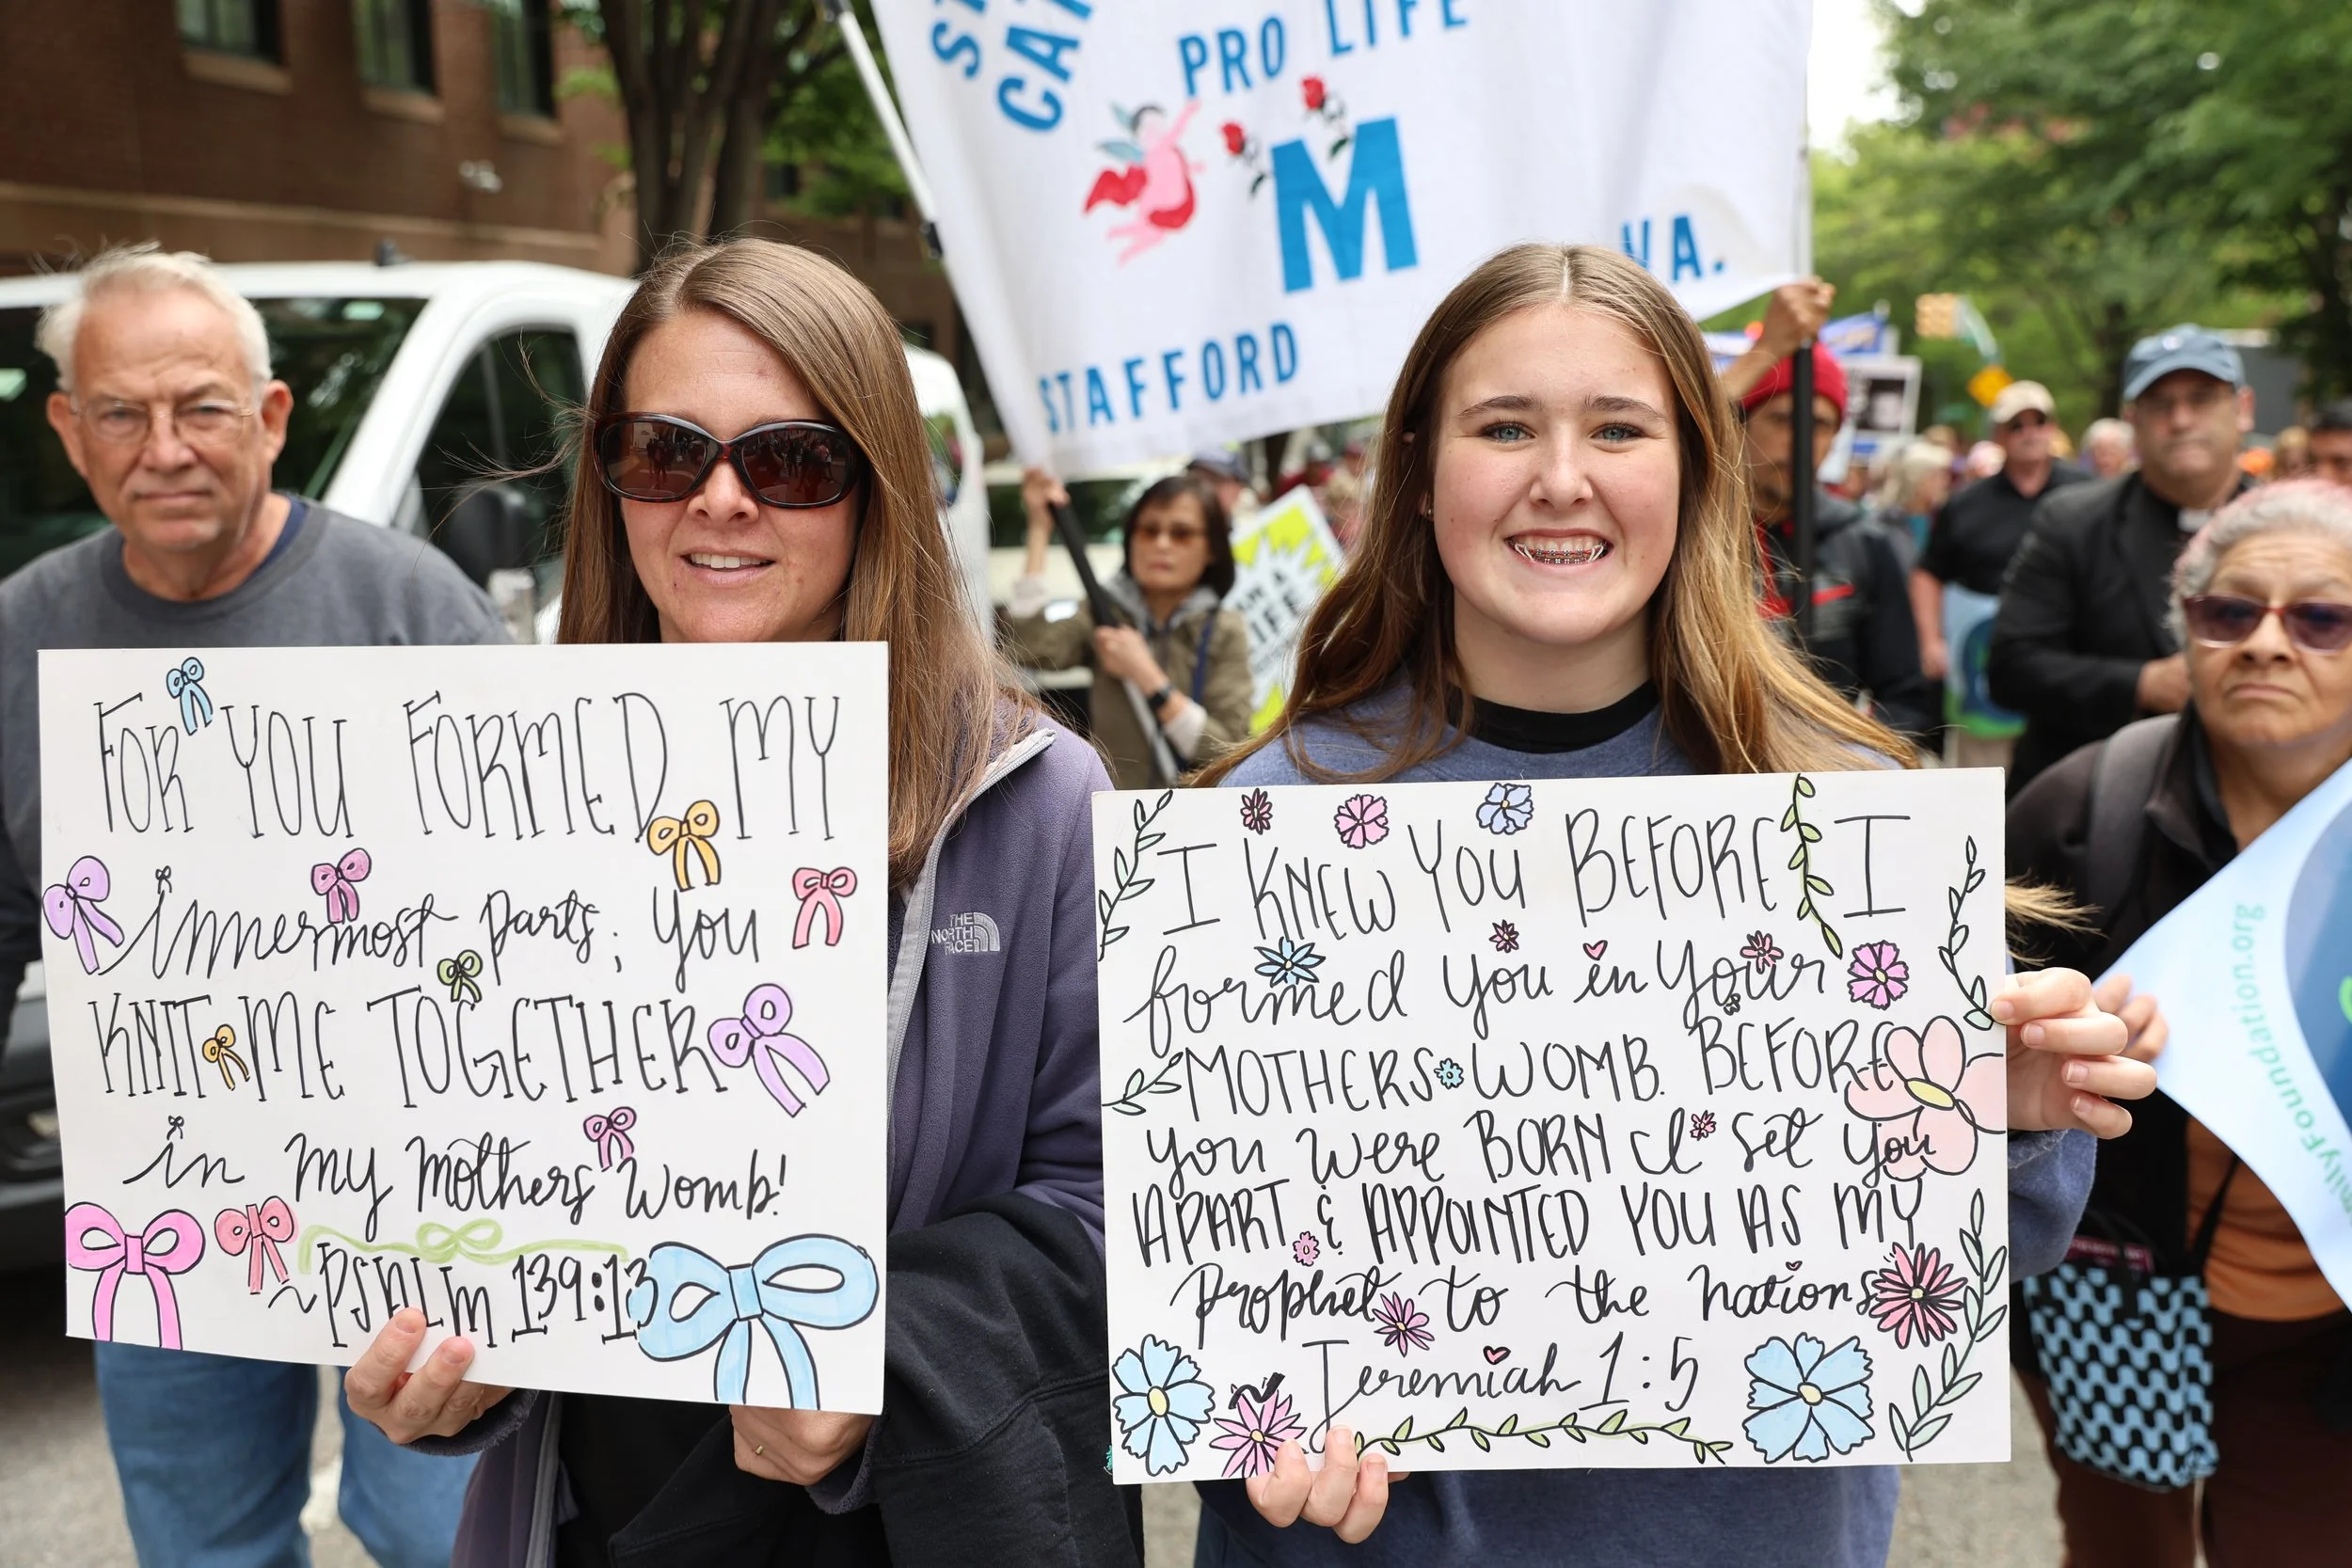 PRO LIFE
M
VA.
STAFFORD
FOR YOU FORMED MY
innermost parts; you
KNIT ME TOGETHER
in my mothers womb!
~PSALM 139:13
THE
NORTH
FACE
I KNEW YOU BEFORE I
formed you in your
MOTHERS WOMB. BEFORE
you were BORN I set you
APART & APPOINTED YOU AS MY
prophet to the nations
Jeremiah 1:5
LIFE